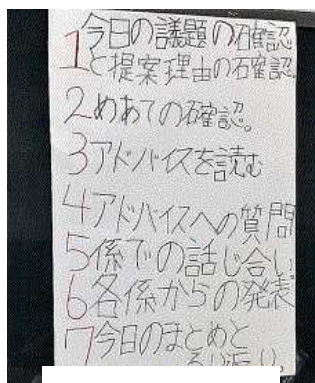 1今日の議題の確認
と提案理由の確認。
2めあての確認。
3アドバイスを読む
4アドバイスへの質問
5係での話し合い。
6各係からの発表
7今日のまとめと